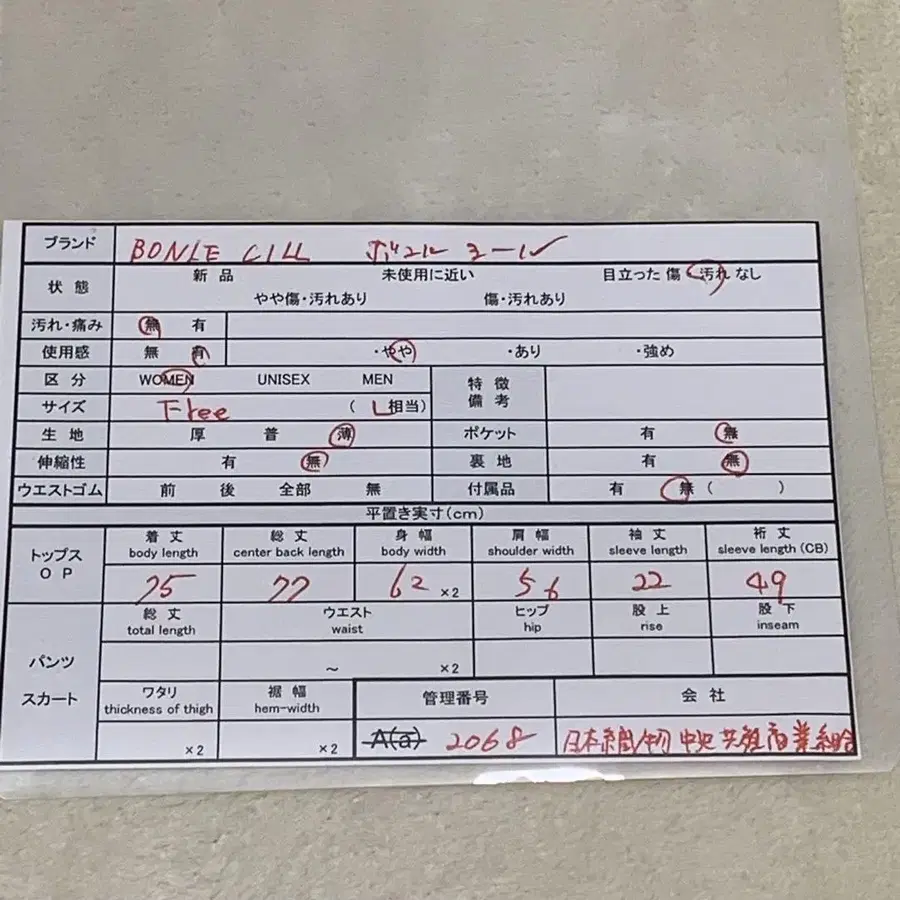 ブランド BONLE CILL ボンル シール
状 態 新 品 未使用に近い 目立った 傷・汚れ なし
やや傷・汚れあり 傷・汚れあり
汚れ・痛み 無 有
使用感 無 有 ・やや ・あり ・強め
区 分 WOMEN UNISEX MEN 特 徴
備 考
サイズ Free ( L相当)
生 地 厚 普 薄 ポケット 有 無
伸縮性 有 無 裏 地 有 無
ウエストゴム 前 後 全部 無 付属品 有 無 ( )
平置き実寸(cm)
トップス
O P
着 丈 総 丈 身 幅 肩 幅 袖 丈 裄 丈
body length center back length body width shoulder width sleeve length sleeve length (CB)
75 77 62 ×2 56 22 49
パンツ
スカート
総 丈 ウエスト ヒップ 股 上 股 下
total length waist hip rise inseam
~ ×2
ワタリ 裾 幅 管理番号 会 社
thickness of thigh hem-width
×2 ×2 A(a) 2068 日本織物中央卸商業組合